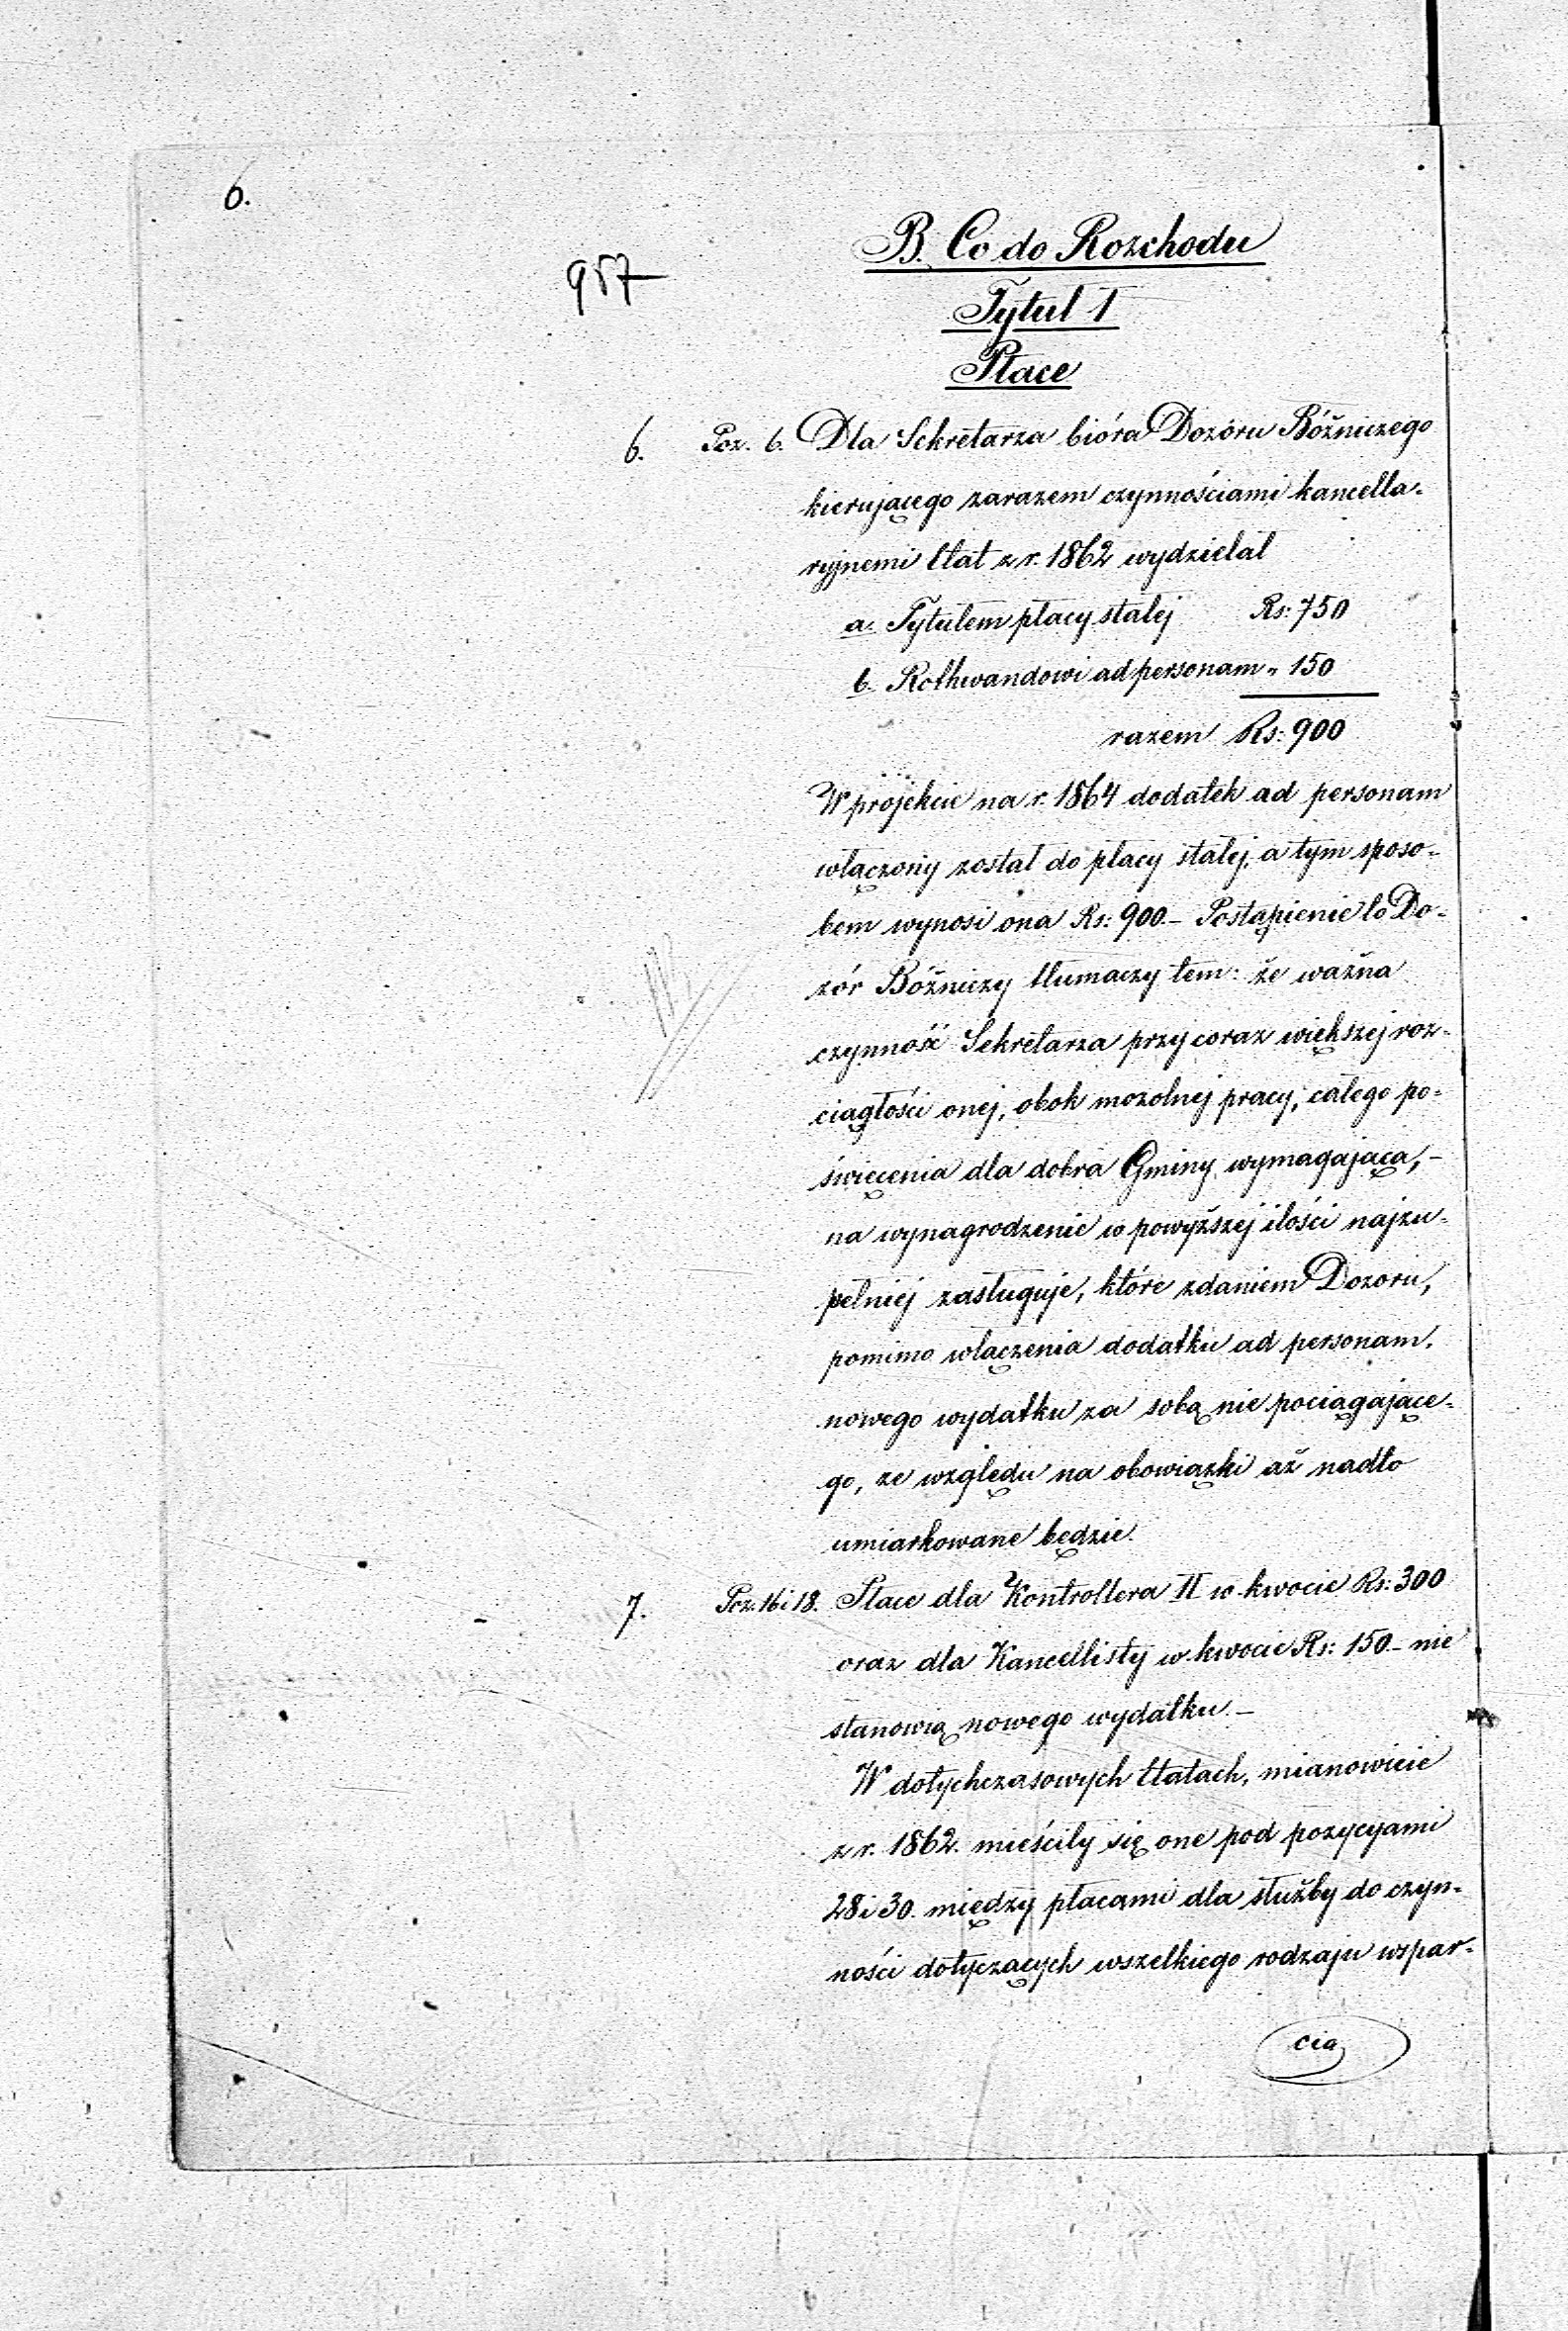 6.
957
B. Co do Rozchodu
Tytuł I
Płace
6. Poz. 6. Dla Sekretarza bióra Dozóru Bóżniczego
kierującego zarazem czynnościami kancella-
ryjnemi Etat z r. 1862 wydzielał
a. Tytułem płacy stałej Rs: 750
b. Rothwandowi ad personam " 150
razem Rs: 900
W projekcie na r. 1864 dodatek ad personam
włączony został do płacy stałej, a tym sposo-
bem wynosi ona Rs: 900.– Postąpienie to Do-
zór Bóżniczy tłumaczy tem: że ważna
czynność Sekretarza przy coraz większej roz-
ciągłości onej, obok mozolnej pracy, całego po-
święcenia dla dobra Gminy wymagająca,–
na wynagrodzenie w powyższej ilości najzu-
pełniej zasługuje, które zdaniem Dozoru,
pomimo włączenia dodatku ad personam,
nowego wydatku za sobą nie pociągające-
go, ze względu na obowiązki aż nadto
umiarkowane będzie.
7. Poz. 16 i 18. Płace dla Kontrollera II w kwocie Rs: 300
oraz dla Kancellisty w kwocie Rs: 150.– nie
stanowią nowego wydatku.–
W dotychczasowych Etatach, mianowicie
z r. 1862. mieściły się one pod pozycyami
28 i 30. między płacami dla służby do czyn-
ności dotyczących wszelkiego rodzaju wspar-
cia